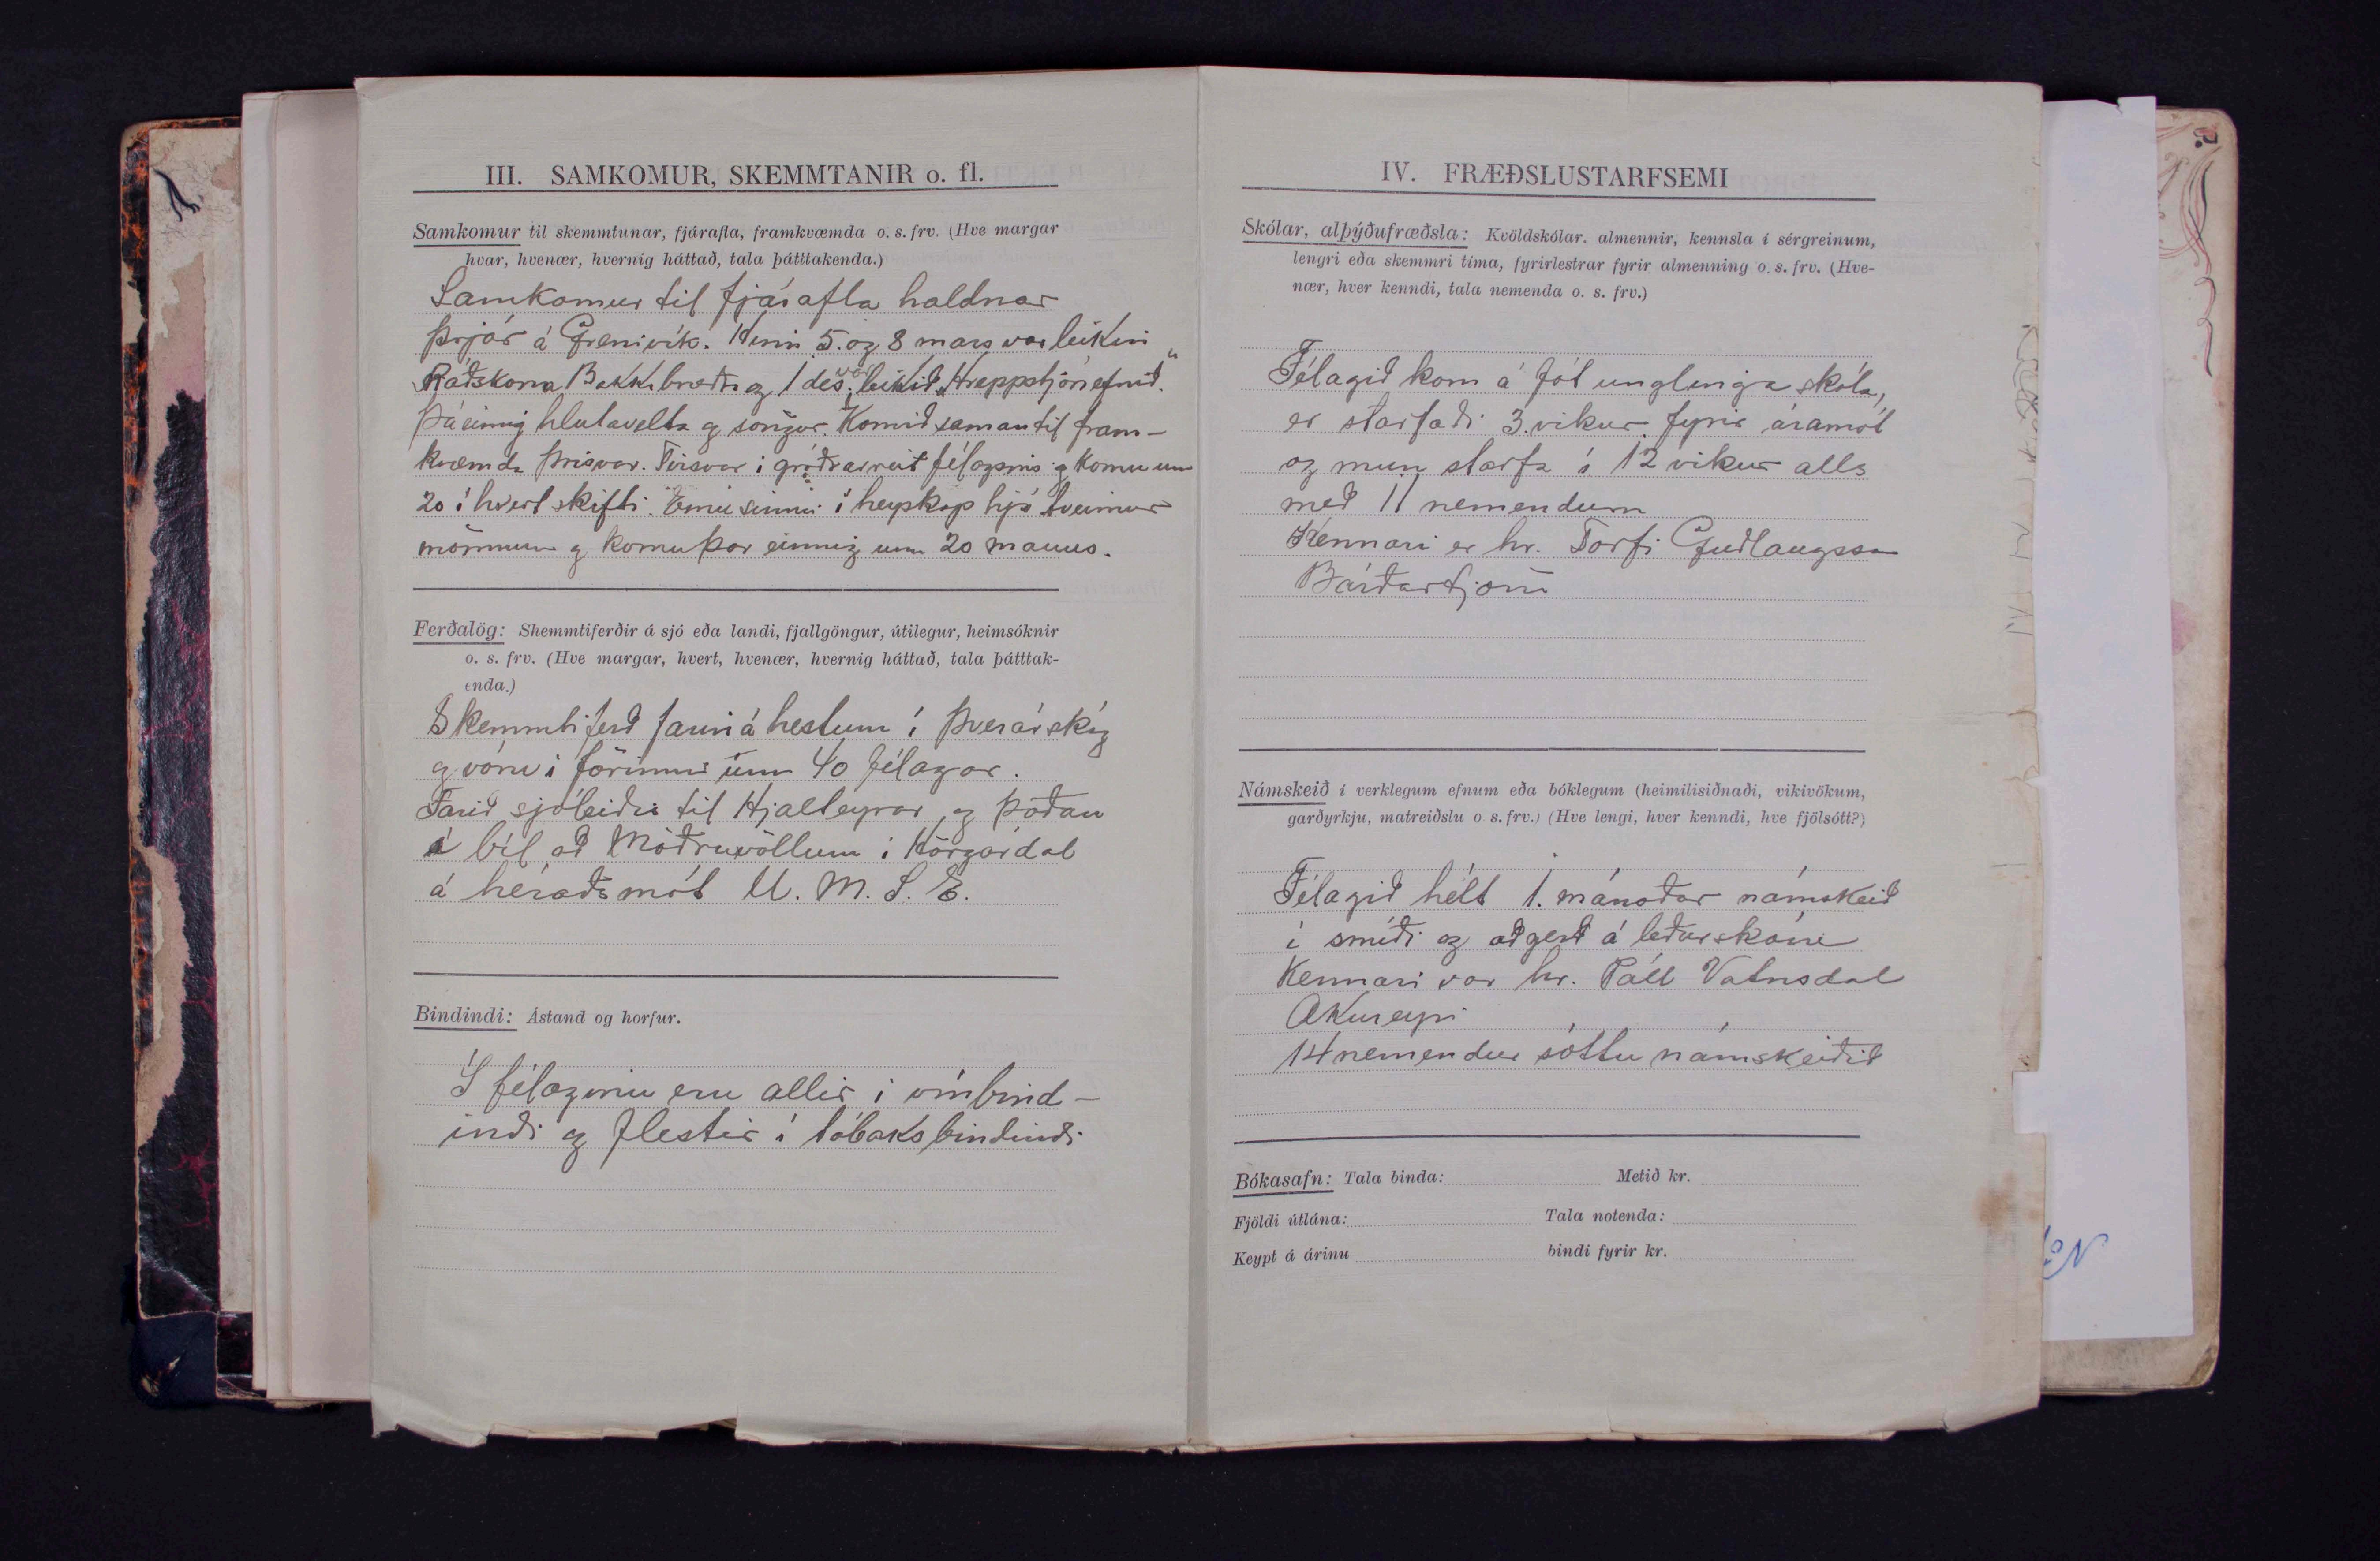 III. SAMKOMUR, SKEMMTANIR o. fl.
Samkomur til skemmtunar, fjárafla, framkvæmda o. s. frv. (Hve margar
hvar, hvenær, hvernig háttað, tala þátttakenda.)
Samkomur til fjárafla haldnar
þrjár á Grenivík. Hinn 5. og 8 mars var leikin
Ráðskona Bakkabræðra og 1 des. var leikið „Hreppstjóraefnið.“
Þá einnig hlutavelta og söngur. Komið saman til fram-
kvæmda þrisvar. Tvisvar í gróðrarreit félagsins og komu um
20 í hvert skifti. Einu sinni í heyskap hjá tveimur
mönnum og komu þar einnig um 20 manns.
Ferðalög: Shemmtiferðir á sjó eða landi, fjallgöngur, útilegur, heimsóknir
o. s. frv. (Hve margar, hvert, hvenær, hvernig háttað, tala þátttak-
enda.)
Skemmtiferð farin á hestum í Þverárskóg
og vóru í förinni um 40 félagar.
Farið sjóleiðis til Hjalteyrar og þaðan
á bíl að Möðruvöllum í Hörgárdal
á héraðsmót U. M. S. E.
Bindindi: Ástand og horfur.
Í félaginu eru allir í vínbind-
indi og flestir í tóbaksbindindi
IV. FRÆÐSLUSTARFSEMI
Skólar, alþýðufræðsla: Kvöldskólar. almennir, kennsla í sérgreinum,
lengri eða skemmri tíma, fyrirlestrar fyrir almenning o. s. frv. (Hve-
nær, hver kenndi, tala nemenda o. s. frv.)
Félagið kom á fót unglinga skóla,
er starfaði 3. vikur fyrir áramót
og mun starfa í 12 vikur alls
með 11 nemendum
Kennari er hr. Torfi Guðlaugsson
Bárðartjörn
Námskeið í verklegum efnum eða bóklegum (heimilisiðnaði, vikivökum,
garðyrkju, matreiðslu o s. frv.) (Hve lengi, hver kenndi, hve fjölsótt?)
Félagið hélt 1. mánaðar námskeið
í smíði og aðgerð á leðurskóm
Kennari var hr. Páll Vatnsdal
Akureyri
14 nemendur sóttu námskeiðið
Bókasafn: Tala binda: Metið kr.
Fjöldi útlána: Tala notenda:
Keypt á árinu bindi fyrir kr.